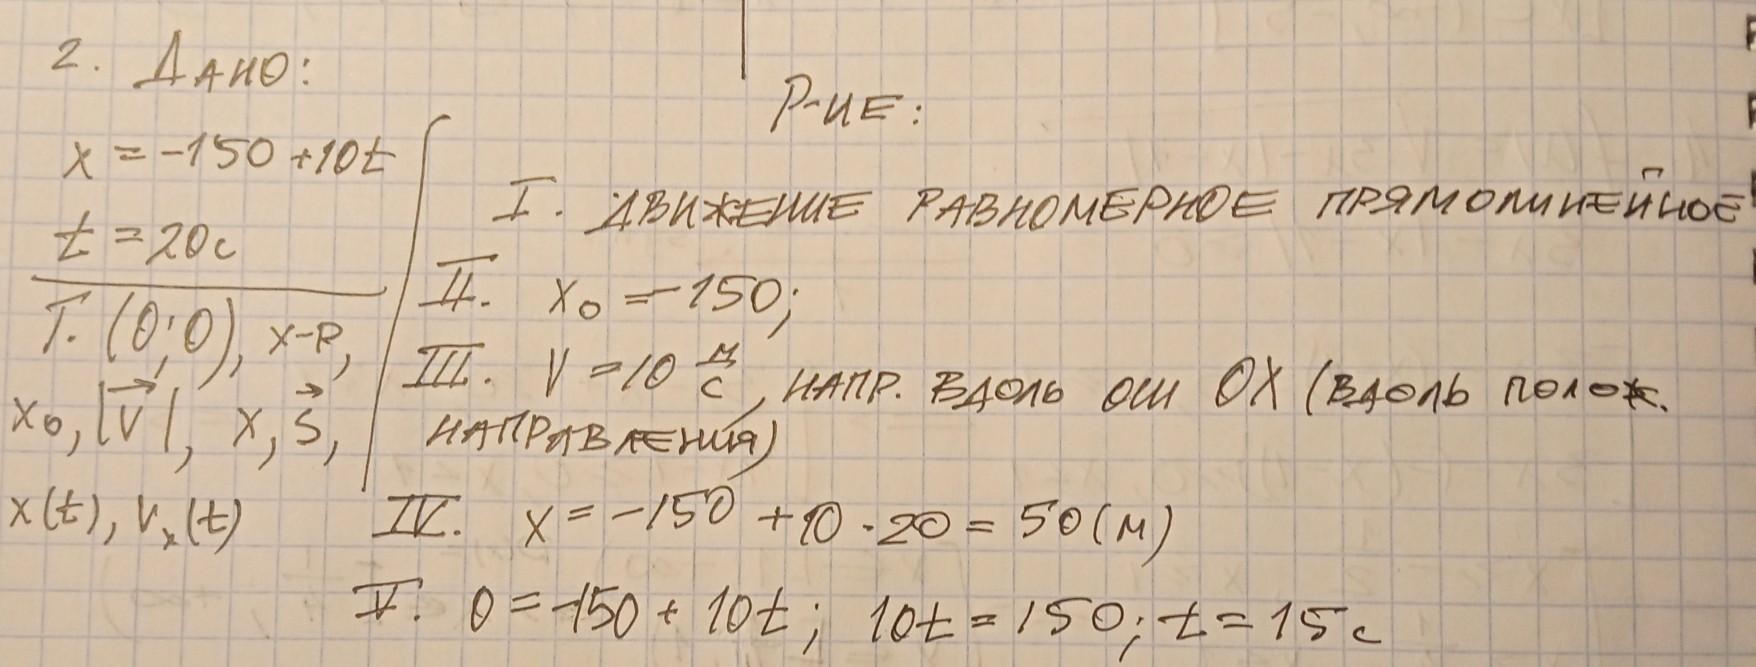 2. Дано:
x = -150 + 10t
t = 20с
Т. (0;0), х-р,
x₀, |v⃗|, x, s⃗,
x(t), vₓ(t)
Р-ие:
I. движение равномерное прямолинейное
II. x₀ = -150;
III. V = 10 м/с, напр. вдоль оси OX (вдоль полож.
направления)
IV. x = -150 + 10 · 20 = 50 (м)
V. 0 = -150 + 10t; 10t = 150; t = 15с